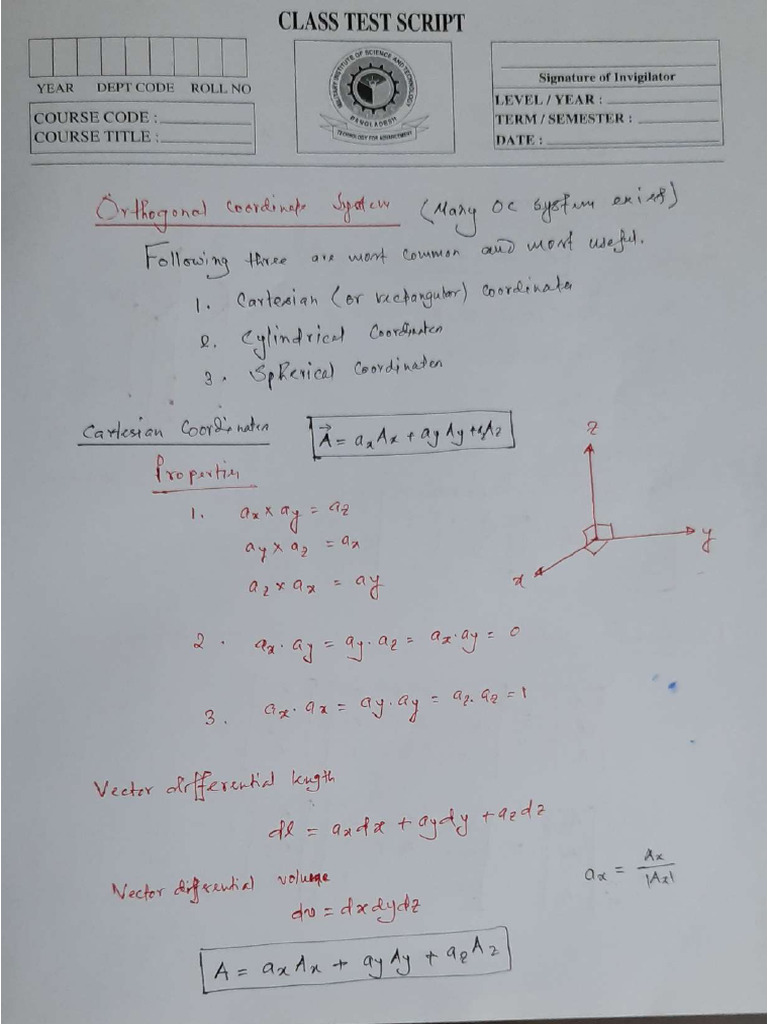 CLASS TEST SCRIPT
YEAR DEPT CODE ROLL NO
COURSE CODE :
COURSE TITLE :
MILITARY INSTITUTE OF SCIENCE AND TECHNOLOGY
BANGLADESH
TECHNOLOGY FOR ADVANCEMENT
Signature of Invigilator
LEVEL / YEAR :
TERM / SEMESTER :
DATE :
Orthogonal Coordinate System (Many OC system exist)
Following three are most common and most useful.
1. Cartesian (or rectangular) coordinates
2. Cylindrical Coordinates
3. Spherical Coordinates
Cartesian Coordinates
\vec{A} = a_x A_x + a_y A_y + a_z A_z
Properties
1. a_x × a_y = a_z
a_y × a_z = a_x
a_z × a_x = a_y
z
y
x
2. a_x · a_y = a_y · a_z = a_x · a_y = 0
3. a_x · a_x = a_y · a_y = a_z · a_z = 1
Vector differential length
dl = a_x dx + a_y dy + a_z dz
a_x = A_x / |A_x|
Vector differential volume
dv = dx dy dz
A = a_x A_x + a_y A_y + a_z A_z